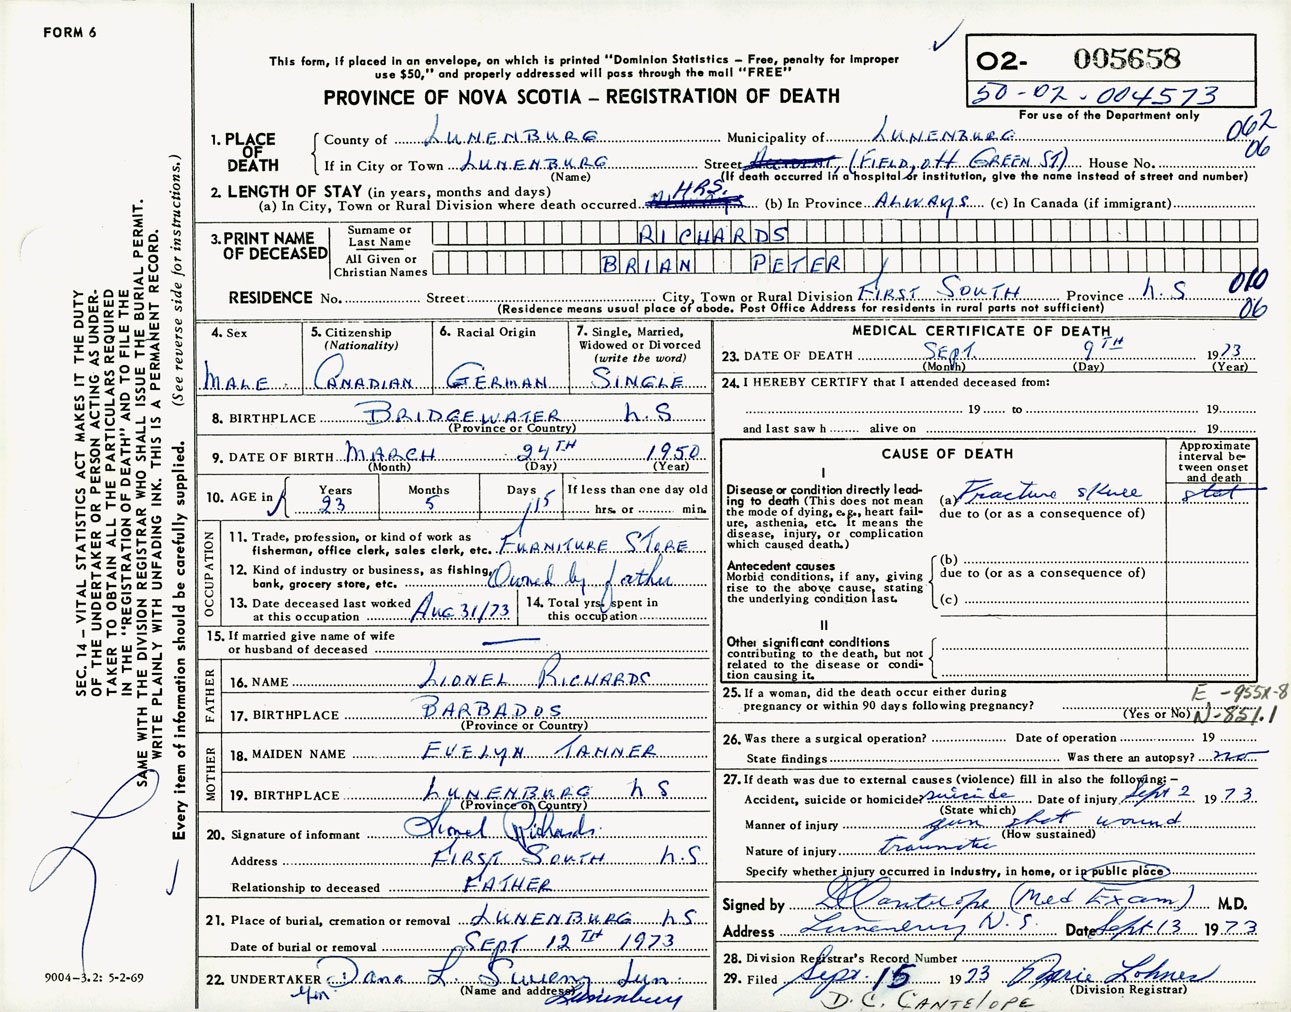 FORM 6
This form, if placed in an envelope, on which is printed "Dominion Statistics – Free, penalty for improper
use $50," and properly addressed will pass through the mail "FREE"
PROVINCE OF NOVA SCOTIA – REGISTRATION OF DEATH
02- 005658
50-02-004573
For use of the Department only
062
06
1. PLACE OF DEATH
County of LUNENBURG Municipality of LUNENBURG
If in City or Town LUNENBURG Street (FIELD, OFF GREEN ST) House No.
(Name) (If death occurred in a hospital or institution, give the name instead of street and number)
2. LENGTH OF STAY (in years, months and days)
(a) In City, Town or Rural Division where death occurred HRS. (b) In Province ALWAYS (c) In Canada (if immigrant)
3. PRINT NAME OF DECEASED
Surname or Last Name RICHARDS
All Given or Christian Names BRIAN PETER
RESIDENCE No. Street City, Town or Rural Division FIRST SOUTH Province N.S
010
06
(Residence means usual place of abode. Post Office Address for residents in rural parts not sufficient)
4. Sex
MALE
5. Citizenship
(Nationality)
CANADIAN
6. Racial Origin
GERMAN
7. Single, Married,
Widowed or Divorced
(write the word)
SINGLE
8. BIRTHPLACE BRIDGEWATER N.S
(Province or Country)
9. DATE OF BIRTH MARCH 24TH 1950
(Month) (Day) (Year)
10. AGE in
Years Months Days If less than one day old
23 5 15 hrs. or min.
OCCUPATION
11. Trade, profession, or kind of work as
fisherman, office clerk, sales clerk, etc. FURNITURE STORE
12. Kind of industry or business, as fishing,
bank, grocery store, etc. Owned by father
13. Date deceased last worked
at this occupation AUG 31/73
14. Total yrs. spent in
this occupation
15. If married give name of wife
or husband of deceased —
FATHER
16. NAME LIONEL RICHARDS
17. BIRTHPLACE BARBADOS
(Province or Country)
MOTHER
18. MAIDEN NAME EVELYN TANNER
19. BIRTHPLACE LUNENBURG N S
(Province or Country)
20. Signature of informant Lionel Richards
Address FIRST SOUTH N.S
Relationship to deceased FATHER
21. Place of burial, cremation or removal LUNENBURG N.S
Date of burial or removal SEPT 12TH 1973
22. UNDERTAKER Dana L. Sweny
(Name and address) Lunenburg
MEDICAL CERTIFICATE OF DEATH
23. DATE OF DEATH SEPT. 9TH 1973
(Month) (Day) (Year)
24. I HEREBY CERTIFY that I attended deceased from:
19 to 19
and last saw h alive on 19
CAUSE OF DEATH
Approximate
interval be-
tween onset
and death
I
Disease or condition directly lead-
ing to death (This does not mean
the mode of dying, e.g., heart fail-
ure, asthenia, etc. It means the
disease, injury, or complication
which caused death.)
(a) Fracture skull stat
due to (or as a consequence of)
Antecedent causes
Morbid conditions, if any, giving
rise to the above cause, stating
the underlying condition last.
(b)
due to (or as a consequence of)
(c)
II
Other significant conditions
contributing to the death, but not
related to the disease or condi-
tion causing it.
25. If a woman, did the death occur either during
pregnancy or within 90 days following pregnancy?
(Yes or No)
E-955X-8
N-851.1
26. Was there a surgical operation? Date of operation 19
State findings Was there an autopsy? no
27. If death was due to external causes (violence) fill in also the following: –
Accident, suicide or homicide? suicide Date of injury Sept 2 1973
(State which)
Manner of injury gun shot wound
(How sustained)
Nature of injury traumatic
Specify whether injury occurred in industry, in home, or in public place
Signed by D C Cantelope (Med Exam) M.D.
Address Lunenburg N.S. Date Sept 13 1973
28. Division Registrar's Record Number
29. Filed Sept. 15 1973 Lohnes
(Division Registrar)
D. C. CANTELOPE
SEC. 14 – VITAL STATISTICS ACT MAKES IT THE DUTY
OF THE UNDERTAKER OR PERSON ACTING AS UNDER-
TAKER TO OBTAIN ALL THE PARTICULARS REQUIRED
IN THE "REGISTRATION OF DEATH" AND TO FILE THE
SAME WITH THE DIVISION REGISTRAR WHO SHALL ISSUE THE BURIAL PERMIT.
WRITE PLAINLY WITH UNFADING INK. THIS IS A PERMANENT RECORD.
Every item of information should be carefully supplied. (See reverse side for instructions.)
9004-3.2: 5-2-69